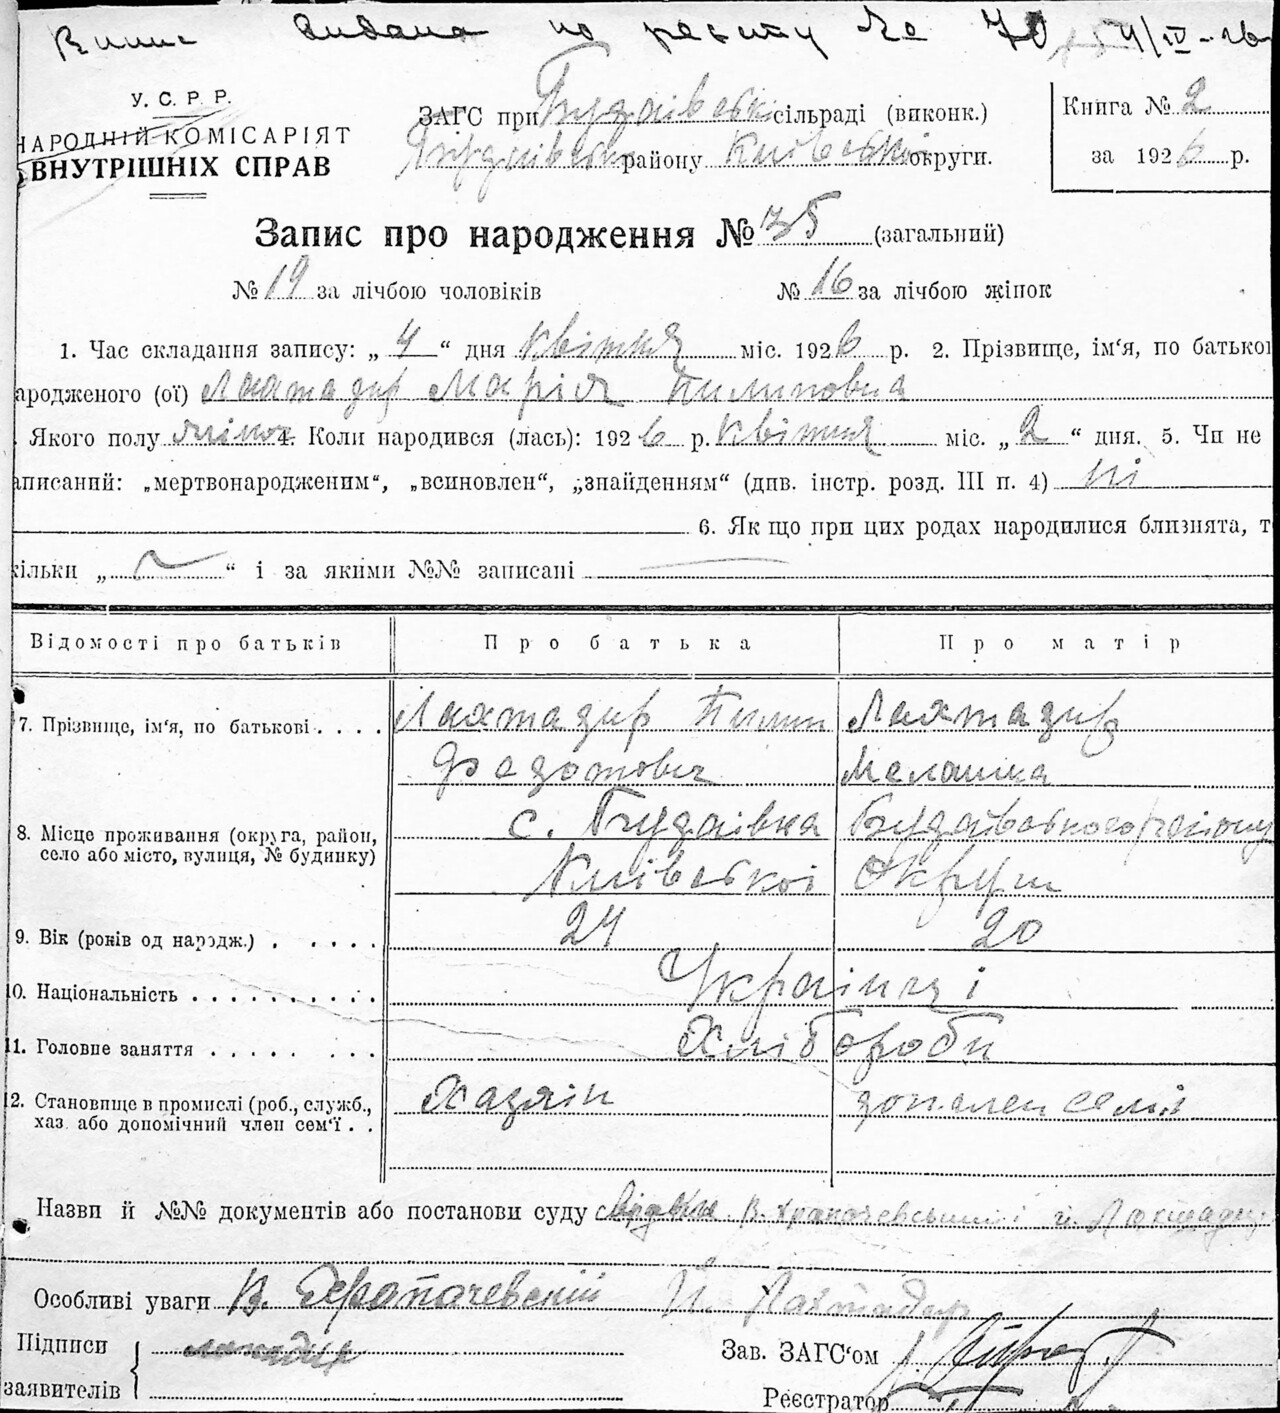 Випис видана по реєстру № 70 4/IV-26
У. С. Р. Р.
НАРОДНІЙ КОМІСАРІЯТ
ВНУТРІШНІХ СПРАВ
ЗАГС при Будаївській сільраді (виконк.)
Будаївського району Київської округи.
Книга № 2
за 1926 р.
Запис про народження № 35 (загальний)
№ 19 за лічбою чоловіків № 16 за лічбою жінок
1. Час складання запису: „ 4 “ дня квітня міс. 1926 р. 2. Прізвище, ім‘я, по батькові
ародженого (ої) Лахтадир Марія Пилиповна
Якого полу жіноч. 4. Коли народився (лась): 1926 р. квітня міс. „ 2 “ дня. 5. Чи не
аписаний: „мертвонародженим“, „всиновлен“, „знайденням“ (див. інстр. розд. III п. 4) ні
6. Як що при цих родах народилися близнята, т
кільки „ “ і за якими №№ записані
Відомості про батьків Про батька Про матір
7. Прізвище, ім‘я, по батькові Лахтадир Пилип Лахтадир
Федотович Мелашка
8. Місце проживання (округа, район, село або місто, вулиця, № будинку) с. Будаївка Будаївського району
Київської Округи
9. Вік (років од народж.) 24 20
10. Національність Українці
11. Головне заняття Хлібороби
12. Становище в промислі (роб., служб., хаз. або допомічний член сем‘ї Хазяін доп. член семі
Назви й №№ документів або постанови суду свідки В. Храпачевський і й. Лахтадир
Особливі уваги В. Храпачевский Й. Лахтадир
Підписи
заявителів
Зав. ЗАГС‘ом
Реєстратор